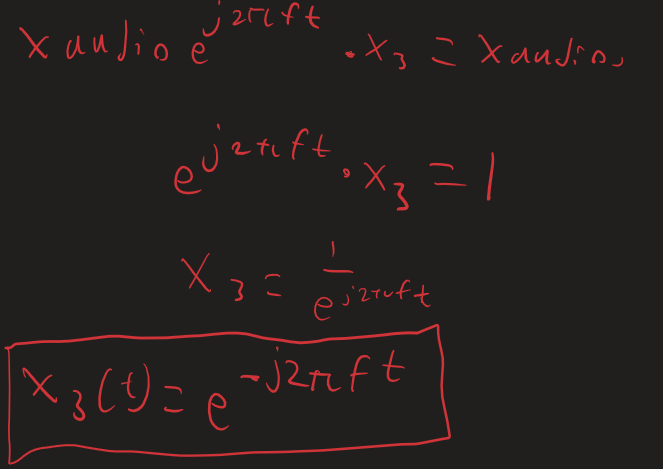 X audio e^{j2πft} · X_3 = X audio,
e^{j2πft} · X_3 = 1
X_3 = 1/e^{j2πft}
X_3(t) = e^{-j2πft}